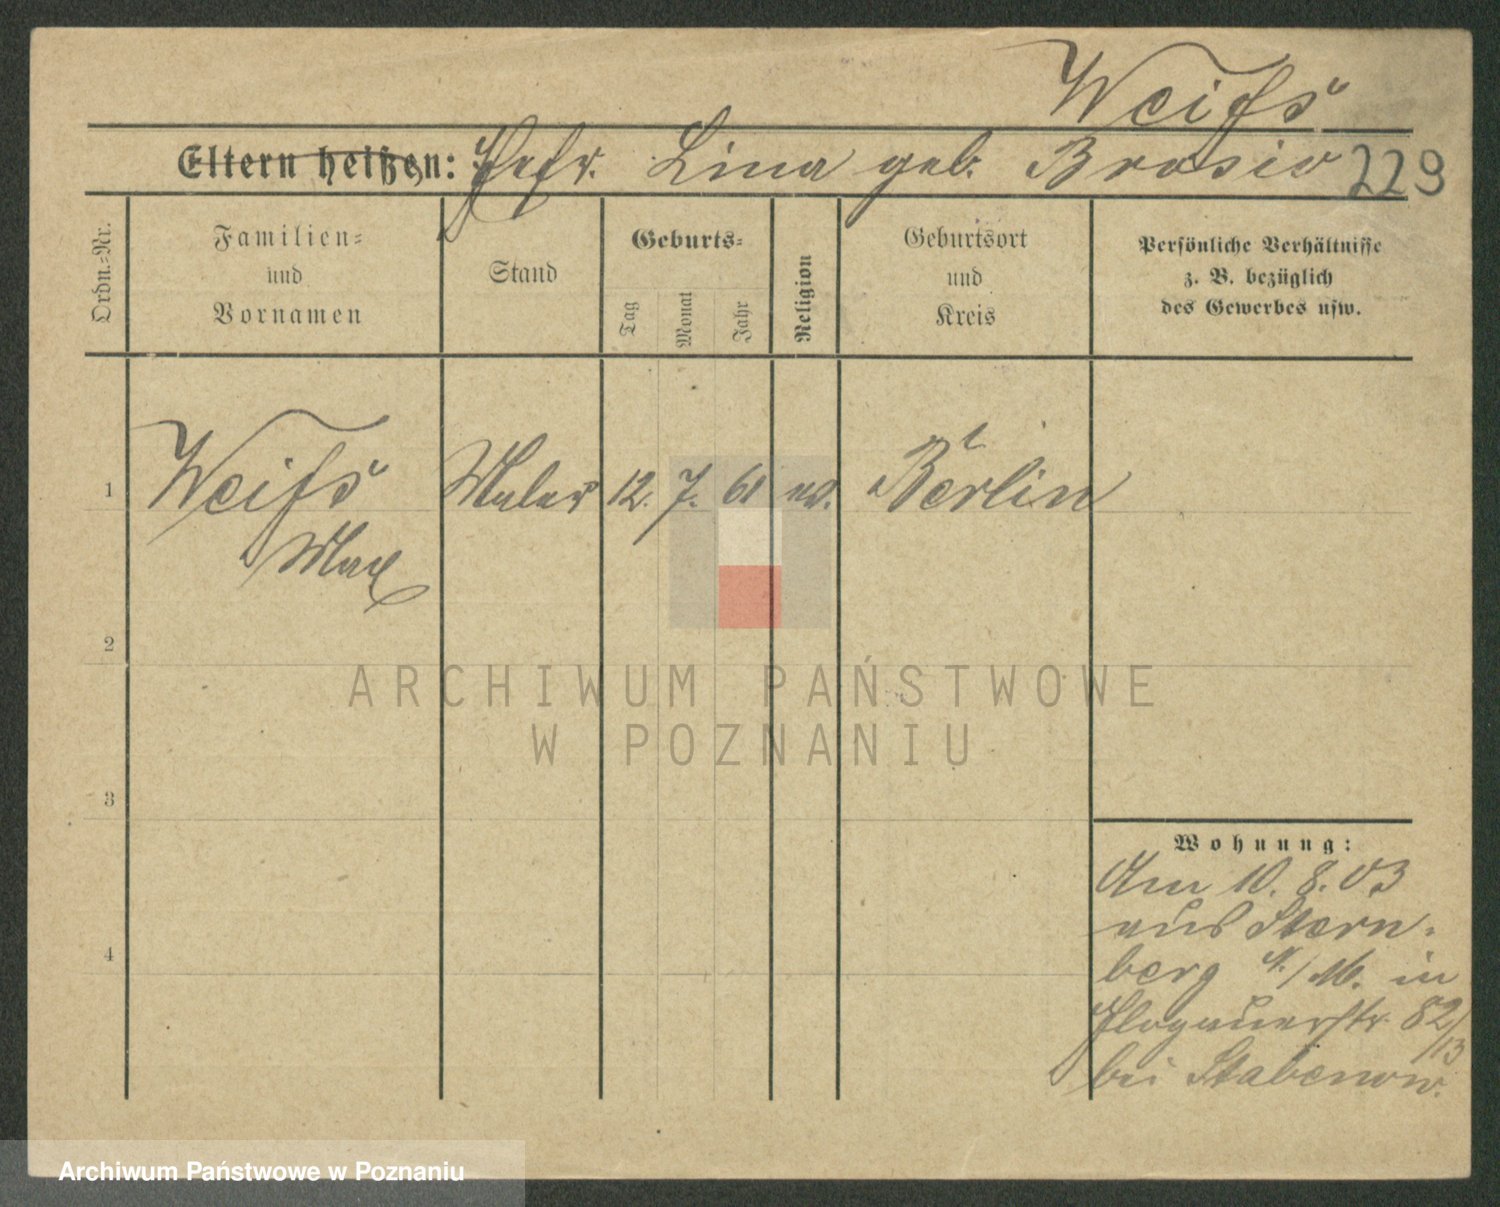 Weifs
Eltern heißen: Ehefr. Lina geb. Brosio 229
Ordn.-Nr.
Familien-
und
Vornamen
Stand
Geburts-
Tag
Monat
Jahr
Religion
Geburtsort
und
Kreis
Persönliche Verhältnisse
z. B. bezüglich
des Gewerbes usw.
1 Weifs Maler 12. 7. 61 ev. Berlin
Max
2
3
4
Wohnung:
Am 10. 8. 03
aus Stern-
berg N./M. in
Glogauerstr. 82/13
bei Stabenow.
ARCHIWUM PAŃSTWOWE
W POZNANIU
Archiwum Państwowe w Poznaniu